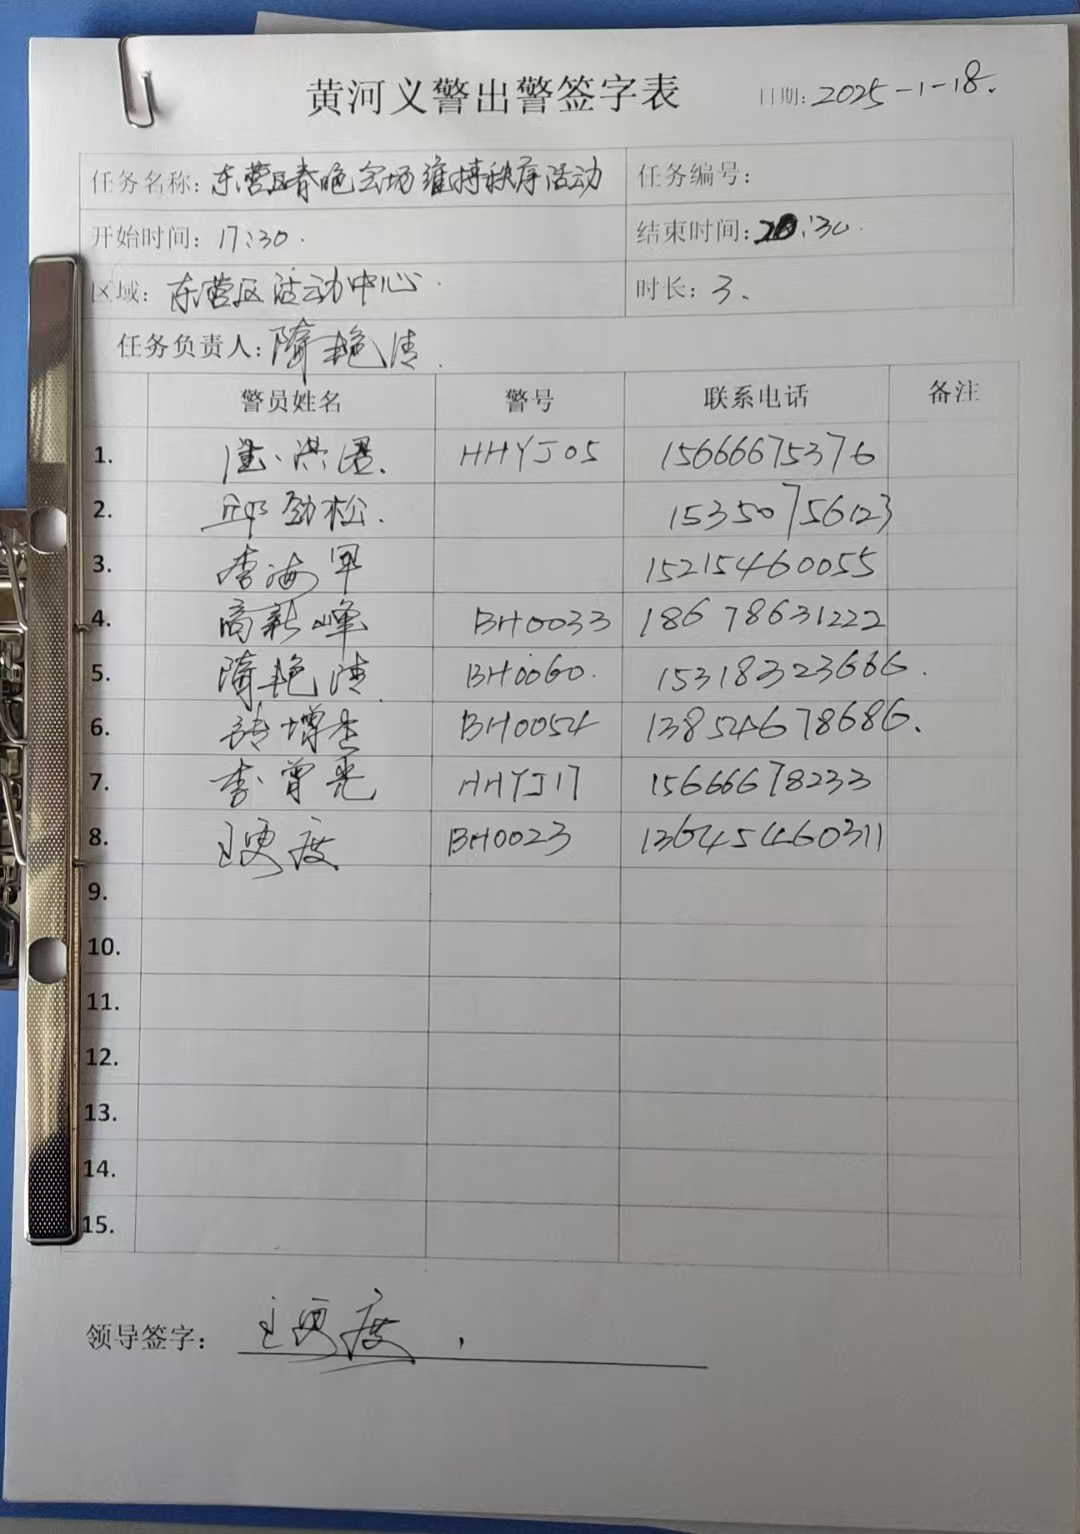 黄河义警出警签字表 日期: 2025-1-18.
任务名称: 东营区春晚会场维持秩序活动 任务编号:
开始时间: 17:30. 结束时间: 20:30.
区域: 东营区活动中心. 时长: 3.
任务负责人: 隋艳清.
警员姓名 警号 联系电话 备注
1. HHYJ05 15666675376
2. 邱劲松. 15350756123
3. 李海军 15215460055
4. 高新峰 BH0033 18678631222
5. 隋艳清. BH0060. 15318323666.
6. 增杰 BH0054 13854678686.
7. 李曾亮 HHYJ17 15666678233
8. 王更度 BH0023 13645460311
9.
10.
11.
12.
13.
14.
15.
领导签字: 王更度.